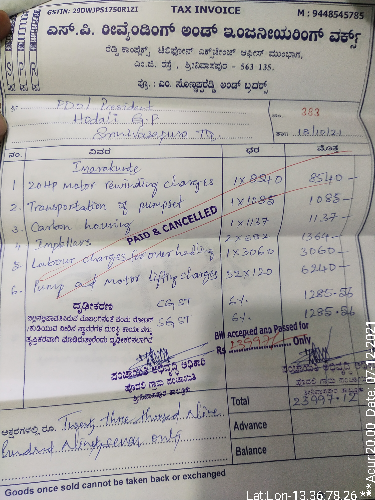 GSTIN: 29DWJPS1750R1ZI TAX INVOICE M : 9448545785
ಎಸ್.ವಿ. ರೀವೈಂಡಿಂಗ್ ಅಂಡ್ ಇಂಜನೀಯರಿಂಗ್ ವರ್ಕ್ಸ್
ರೆಡ್ಡಿ ಕಾಂಪ್ಲೆಕ್ಸ್, ಟೆಲಿಫೋನ್ ಎಕ್ಸ್‌ಚೇಂಜ್ ಆಫೀಸ್ ಮುಂಭಾಗ,
ಎಂ.ಜಿ. ರಸ್ತೆ, ಶ್ರೀನಿವಾಸಪುರ - 563 135.
ಪ್ರೊ : ಎಂ. ಸೊಣ್ಣಪ್ಪರೆಡ್ಡಿ ಅಂಡ್ ಬ್ರದರ್ಸ್
PDO/ President
Hodali G.P
Srinivasapura TQ
ನಂ. 383
18/10/21
ನಂ. ವಿವರ ದರ ಮೊತ್ತ
1 20HP Motor rewinding charges 1 x 8540 8540 -
2. Transportation of pumpset 1 x 1085 1085 -
3. Carbon housing 1 x 1137 1137 -
4 Impellars 1364 -
5. Labour charges for over hauling 1 x 3060 3060 -
6. Pump and motor lifting charges 52 x 120 6240 -
PAID & CANCELLED
ದೃಢೀಕರಣ
CGST 6% 1285-56
SGST 6% 1285-56
Bill Accepted and Passed for
Rs 23997/- Only
ಪಂಚಾಯತಿ ಅಭಿವೃದ್ಧಿ ಅಧಿಕಾರಿ
ಹೊದಲಿ ಗ್ರಾಮ ಪಂಚಾಯತಿ
ಶ್ರೀನಿವಾಸಪುರ ತಾಲ್ಲೂಕು
Total 23997-12
ಅಕ್ಷರಗಳಲ್ಲಿ ರೂ. Twenty three thousand Nine
Hundred Ninety seven only
Advance
Balance
Goods once sold cannot be taken back or exchanged
Lat:Lon-13.36:78.26 ***Acur 20.00 Date 07-12-2021